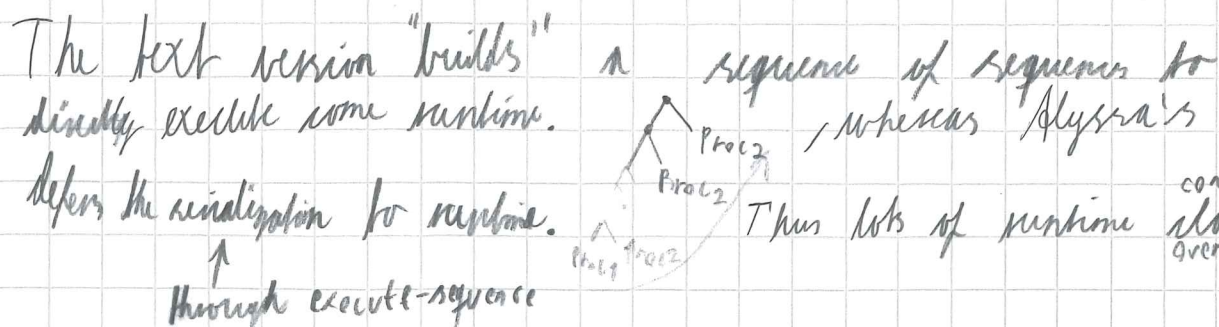 The text version "builds" a sequence of sequences to
directly execute come runtime.
Proc2
, whereas Alyssa's
Proc2
defers the serialization to runtime.
Proc1 Proc2
Thus lots of runtime
through execute-sequence